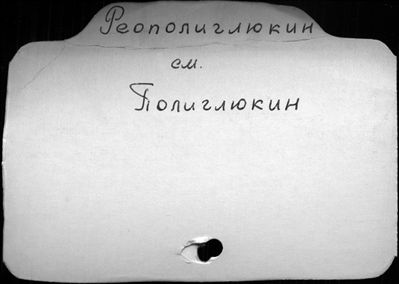 Реополиглюкин
см.
Полиглюкин